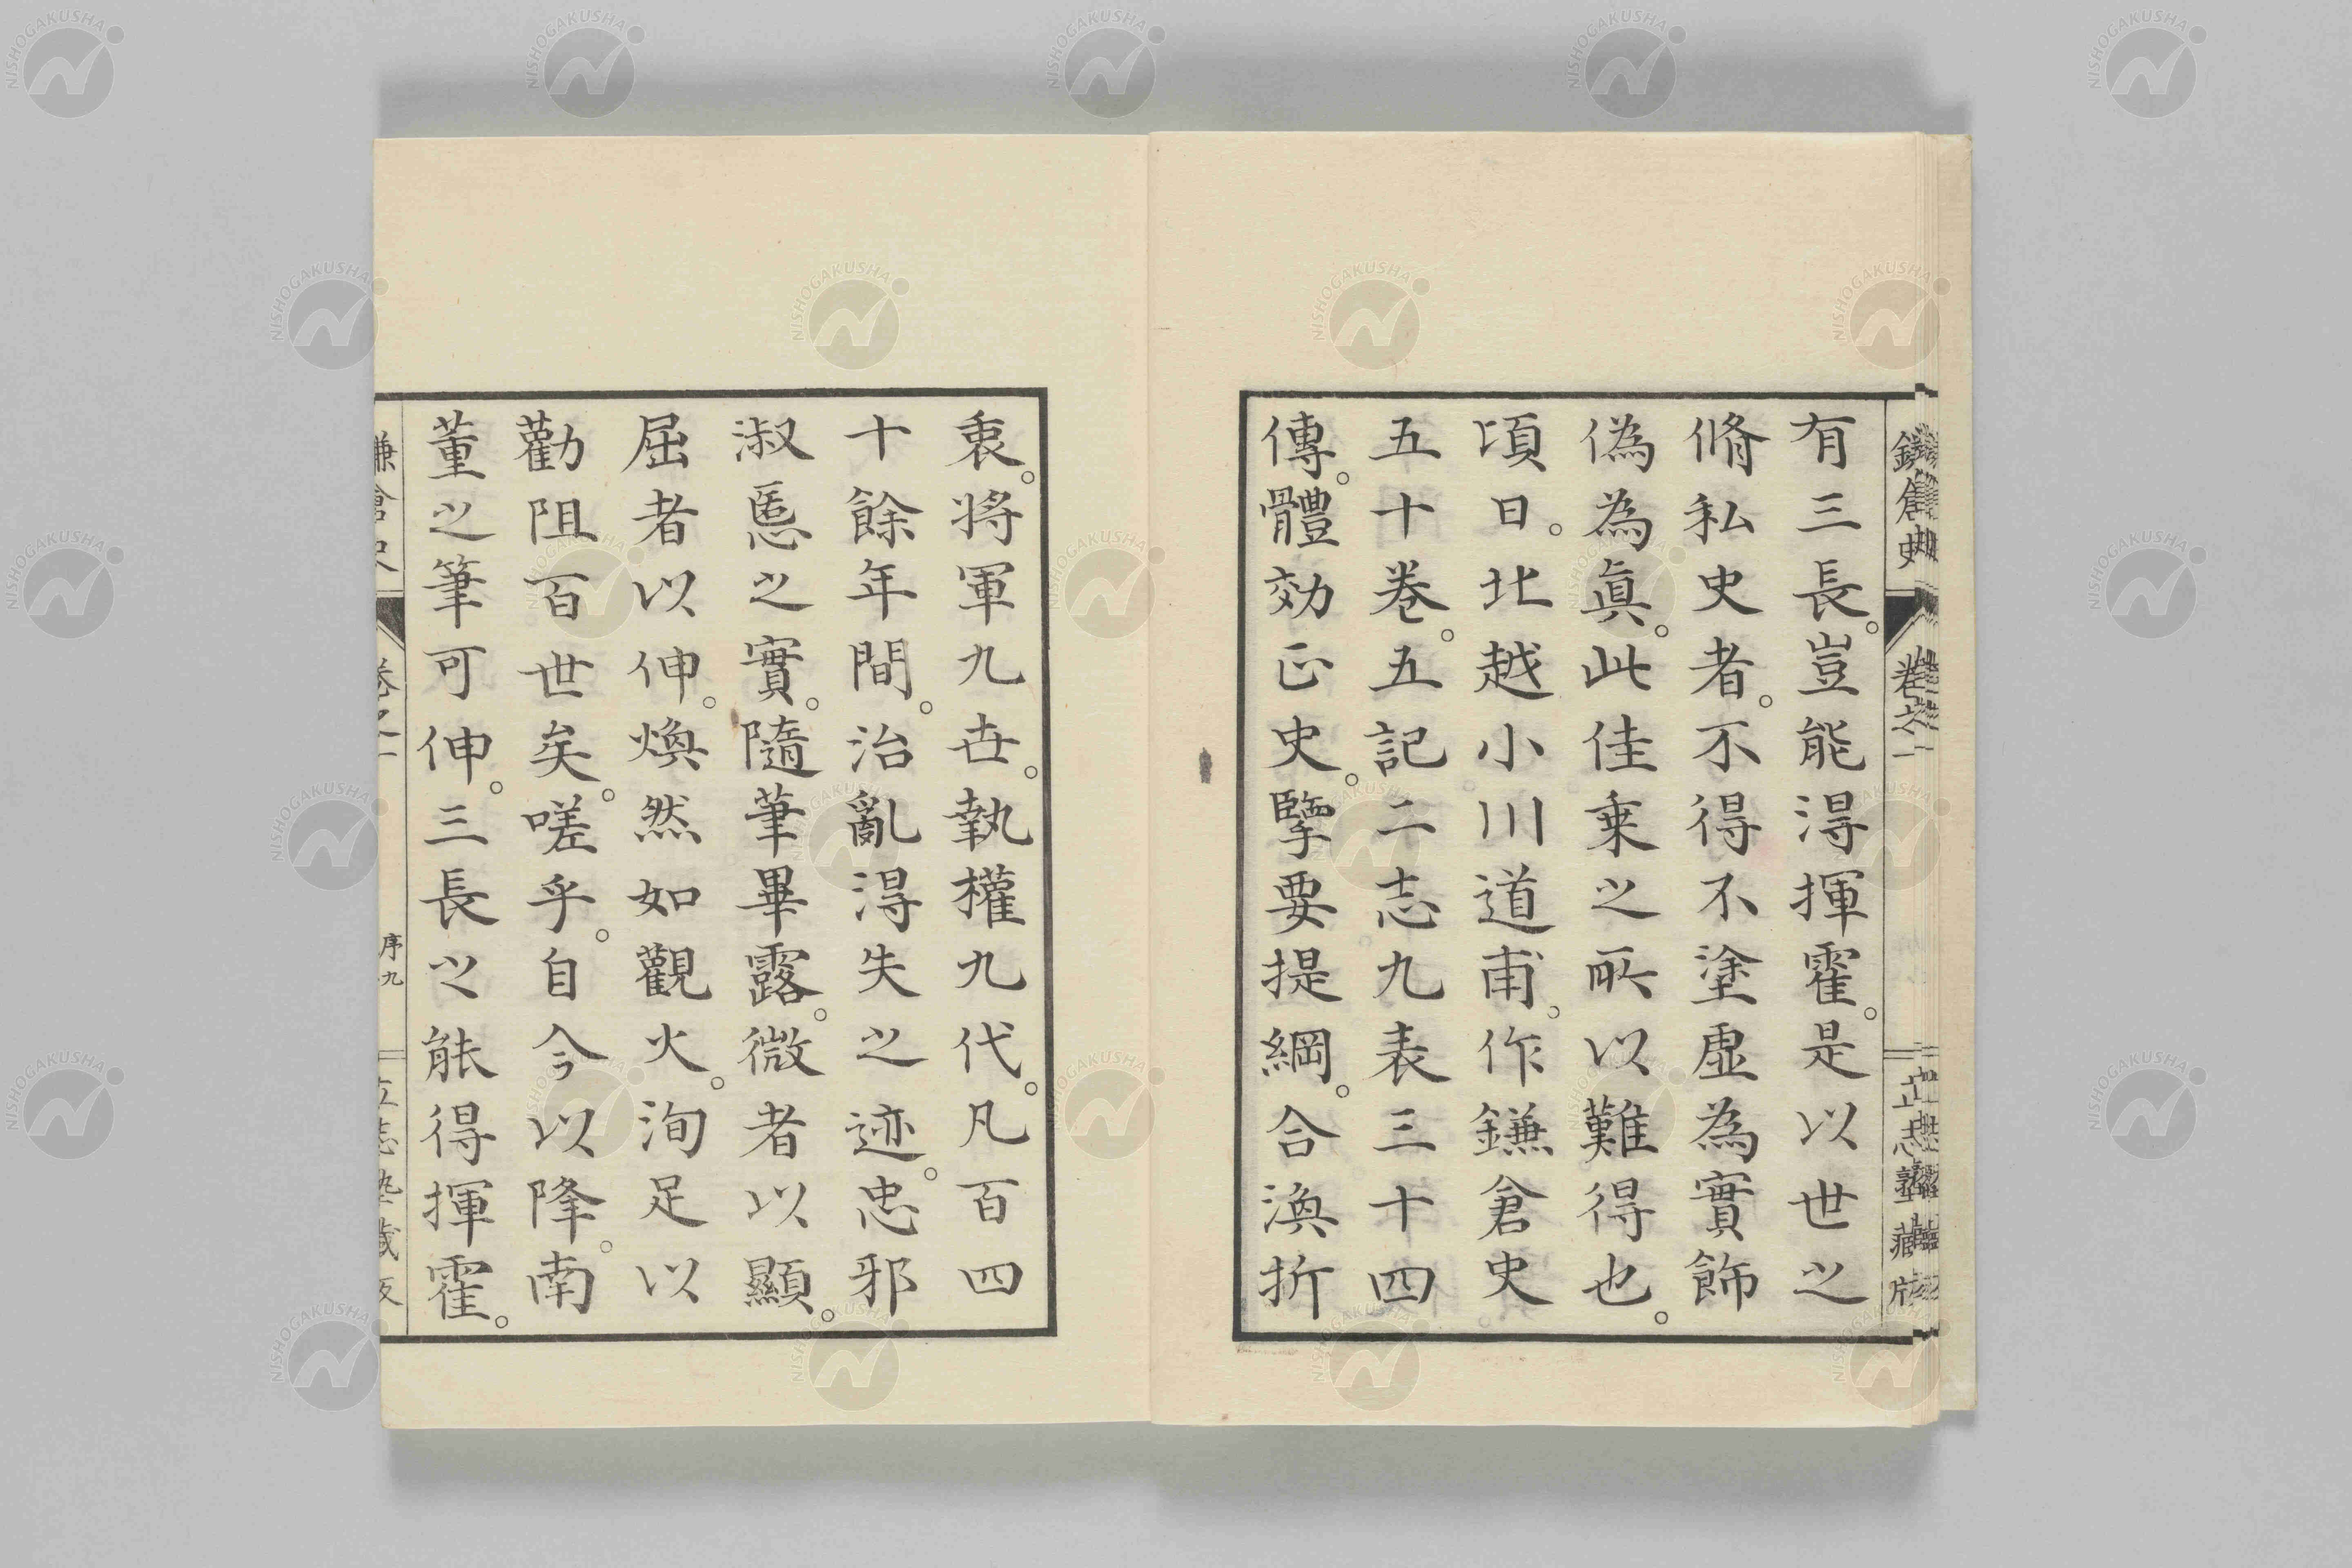 有三長。豈能淂揮霍。是以世之
脩私史者。不得不塗虛為實飾
偽為眞。此佳乗之所以難得也。
頃日。北越小川道甫。作鎌倉史
五十卷。五記二志九表三十四
傳。體効正史。擥要提綱。合渙折
衷。將軍九世。執權九代。凡百四
十餘年間。治亂淂失之迹。忠邪
淑慝之實。隨筆畢露。微者以顯。
屈者以伸。煥然如觀火。洵足以
勸阻百世矣。嗟乎。自今以降。南
董之筆可伸。三長之能得揮霍。
鎌倉史
卷之一
序九
立志塾藏版
NISHOGAKUSHA